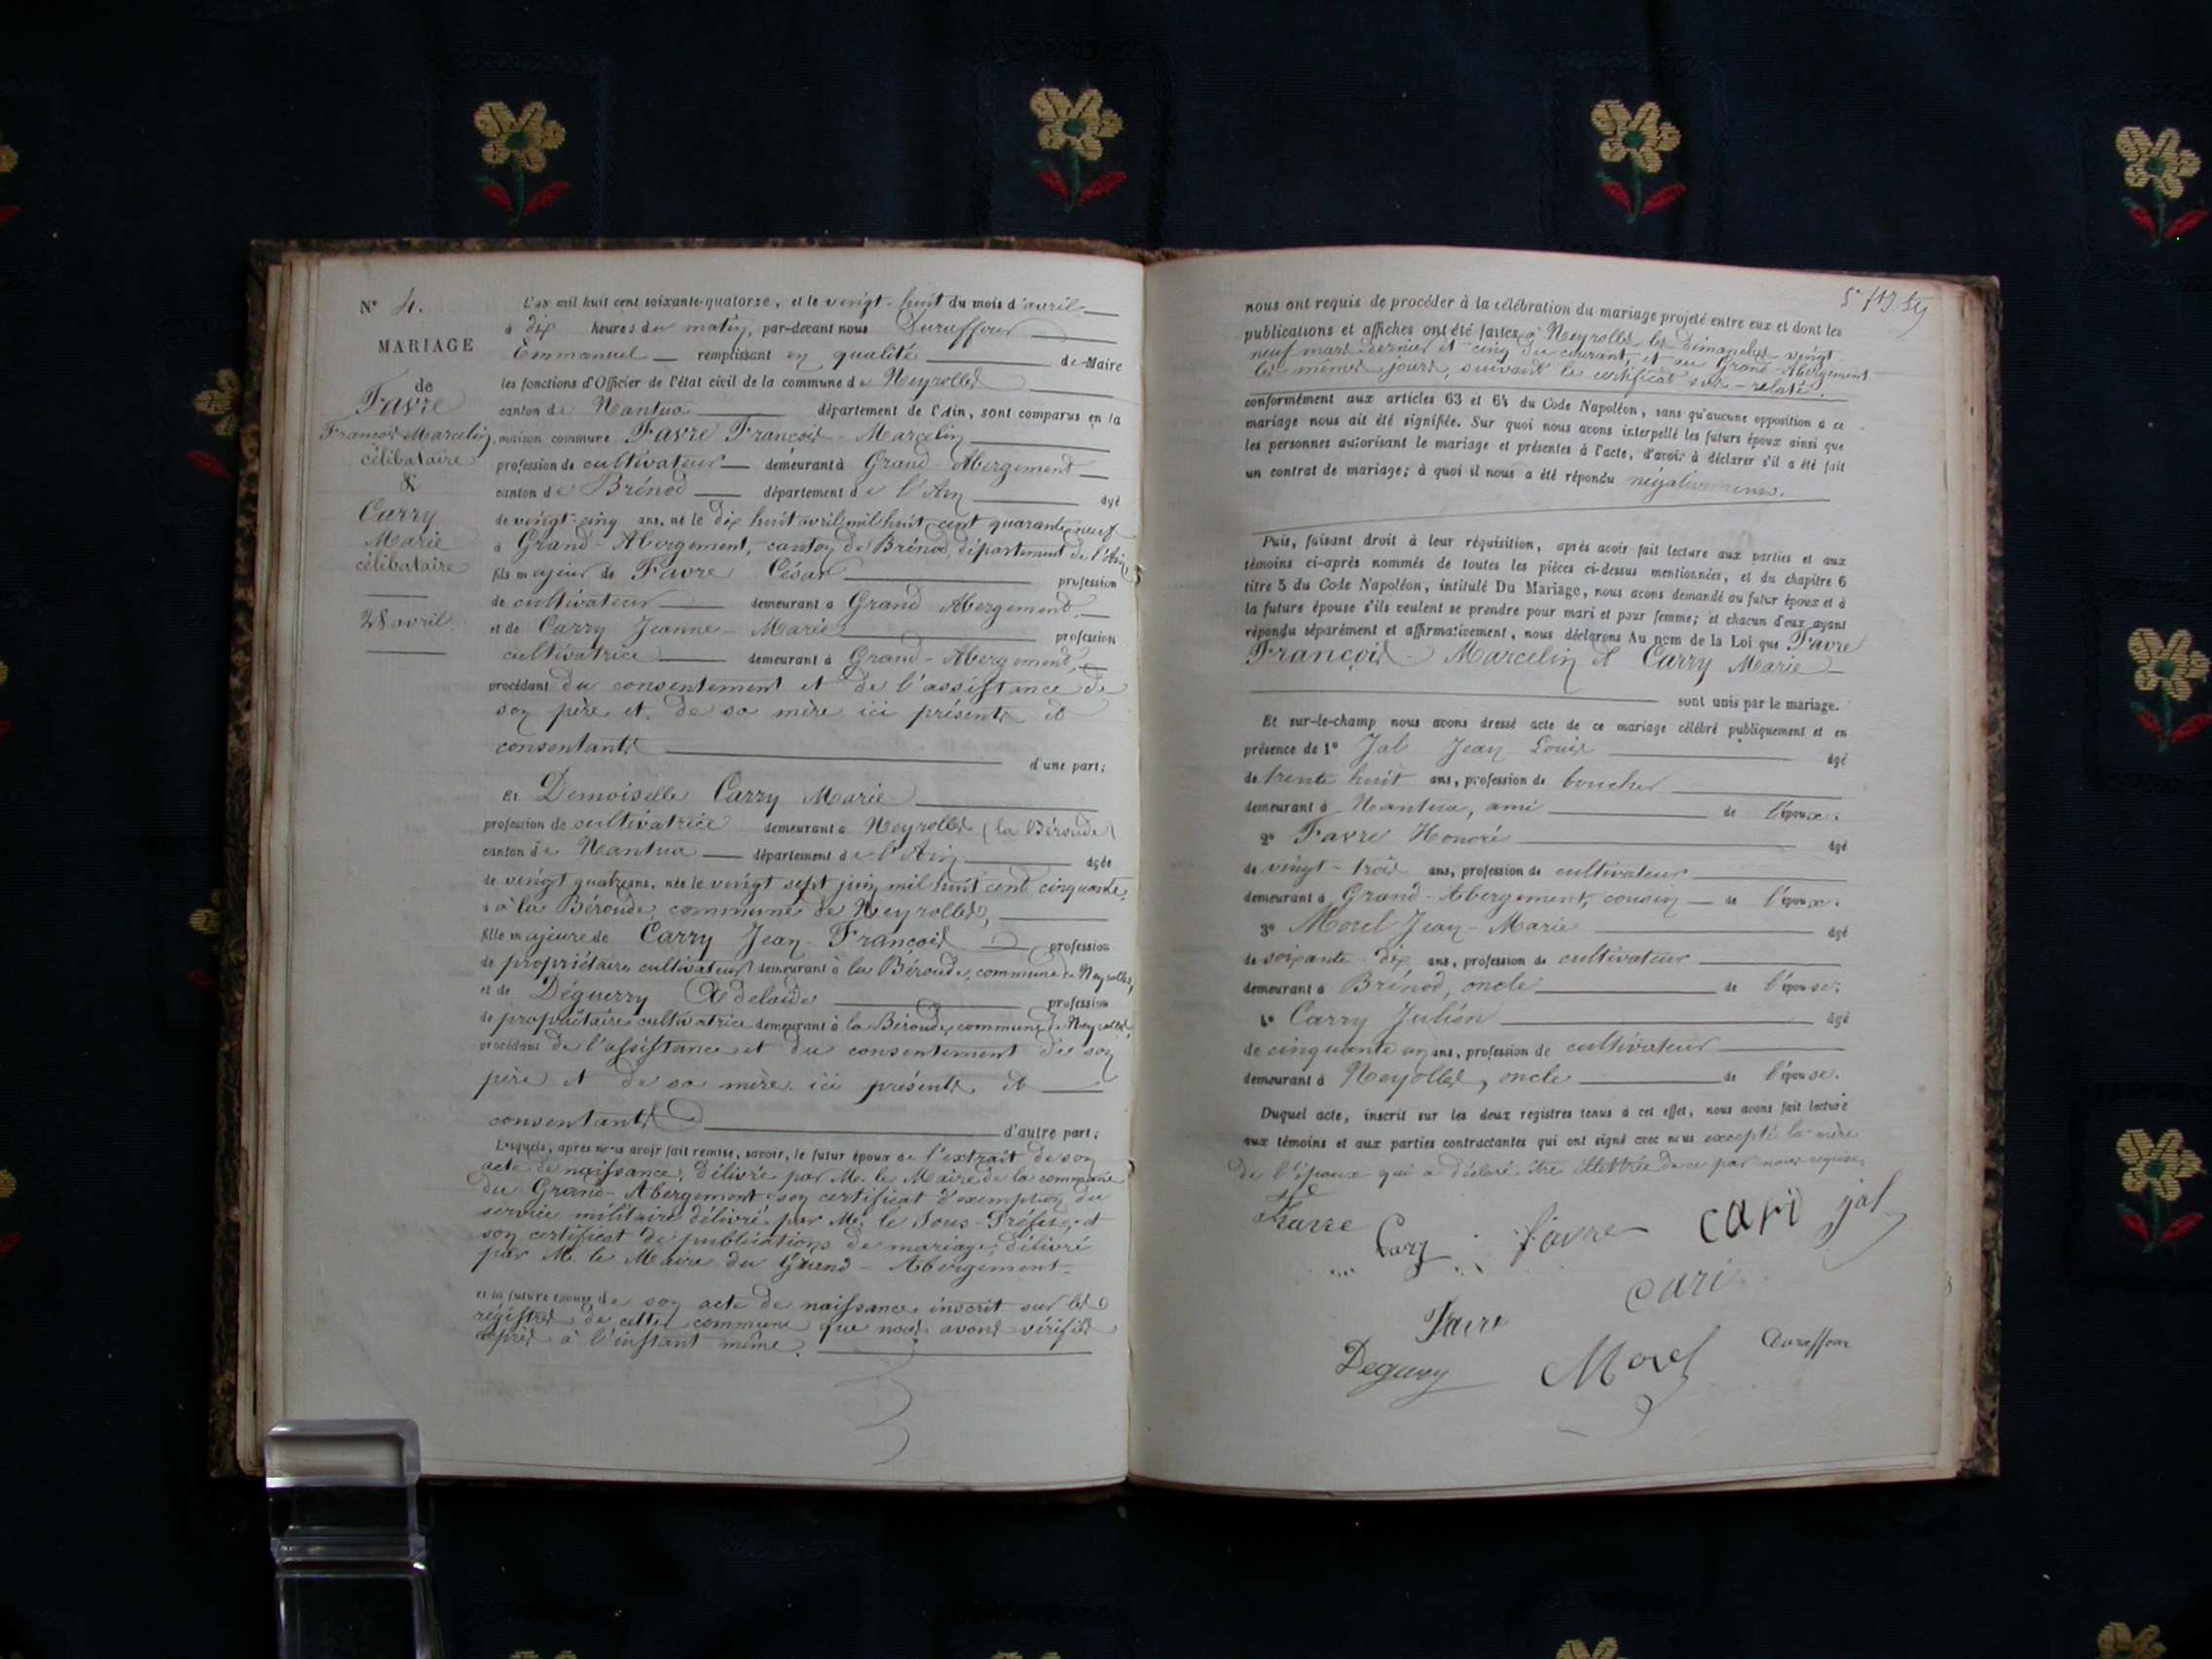 N° 4.
MARIAGE
de
Favre
François Marcelin,
célibataire
&
Carry
Marie
célibataire
28 avril
L'an mil huit cent soixante-quatorze, et le vingt-huit du mois d'avril
à dix heures du matin, par-devant nous Duraffour
Emmanuel remplissant en qualité de Maire
les fonctions d'Officier de l'état civil de la commune de Neyrolles
canton de Nantua département de l'Ain, sont comparus en la
maison commune Favre François Marcelin
profession de cultivateur demeurant à Grand-Abergement
canton de Brénod département de l'Ain âgé
de vingt-cinq ans, né le dix huit avril mil huit cent quarante neuf
à Grand-Abergement, canton de Brénod, département de l'Ain
fils majeur de Favre César profession
de cultivateur demeurant à Grand Abergement
et de Carry Jeanne-Marie profession
cultivatrice demeurant à Grand-Abergement,
procédant du consentement et de l'assistance de
son père et de sa mère ici présents et
consentants
d'une part;
Et Demoiselle Carry Marie
profession de cultivatrice demeurant à Neyrolles (la Béroude)
canton de Nantua département de l'Ain âgée
de vingt quatre ans, née le vingt sept juin mil huit cent cinquante,
à la Béroude, commune de Neyrolles,
fille majeure de Carry Jean-François profession
de propriétaire cultivateur demeurant à la Béroude, commune de Neyrolles,
et de Déguerry Adelaïde profession
de propriétaire cultivatrice demeurant à la Béroude, commune de Neyrolles,
procédant de l'assistance et du consentement de son
père et de sa mère ici présents et
consentants d'autre part;
Lesquels, après nous avoir fait remise, savoir, le futur époux de l'extrait de son
acte de naissance, délivré par M. le Maire de la commune
du Grand-Abergement, son certificat d'exemption du
service militaire délivré par M. le Sous-Préfet, et
son certificat de publications de mariage, délivré
par M. le Maire du Grand-Abergement.
et la future épouse de son acte de naissance inscrit sur les
régistres de cette commune que nous avons vérifiés
après à l'instant même.
nous ont requis de procéder à la célébration du mariage projeté entre eux et dont les
publications et affiches ont été faites à Neyrolles les dimanches vingt
neuf mars dernier et cinq du courant, et au Grand-Abergement
les mêmes jours, suivant le certificat sus-relaté.
conformément aux articles 63 et 64 du Code Napoléon, sans qu'aucune opposition à ce
mariage nous ait été signifiée. Sur quoi nous avons interpellé les futurs époux ainsi que
les personnes autorisant le mariage et présentes à l'acte, d'avoir à déclarer s'il a été fait
un contrat de mariage; à quoi il nous a été répondu négativement.
Puis, faisant droit à leur réquisition, après avoir fait lecture aux parties et aux
témoins ci-après nommés de toutes les pièces ci-dessus mentionnées, et du chapitre 6
titre 5 du Code Napoléon, intitulé Du Mariage, nous avons demandé au futur époux et à
la future épouse s'ils veulent se prendre pour mari et pour femme; et chacun d'eux ayant
répondu séparément et affirmativement, nous déclarons Au nom de la Loi que Favre
François-Marcelin et Carry Marie
sont unis par le mariage.
Et sur-le-champ nous avons dressé acte de ce mariage célébré publiquement et en
présence de 1° Jal Jean Louis âgé
de trente huit ans, profession de boucher
demeurant à Nantua, ami de l'époux;
2° Favre Honoré âgé
de vingt-trois ans, profession de cultivateur
demeurant à Grand-Abergement, cousin de l'époux;
3° Morel Jean-Marie âgé
de soixante-dix ans, profession de cultivateur
demeurant à Brénod, oncle de l'épouse;
4° Carry Julien âgé
de cinquante un ans, profession de cultivateur
demeurant à Neyolles, oncle de l'épouse.
Duquel acte, inscrit sur les deux registres tenus à cet effet, nous avons fait lecture
aux témoins et aux parties contractantes qui ont signé avec nous excepté la mère
de l'époux qui a déclaré être illettrée de ce par nous requise.
Favre Cary favre cari jal
cari
Favre
Deguery Morel Duraffour